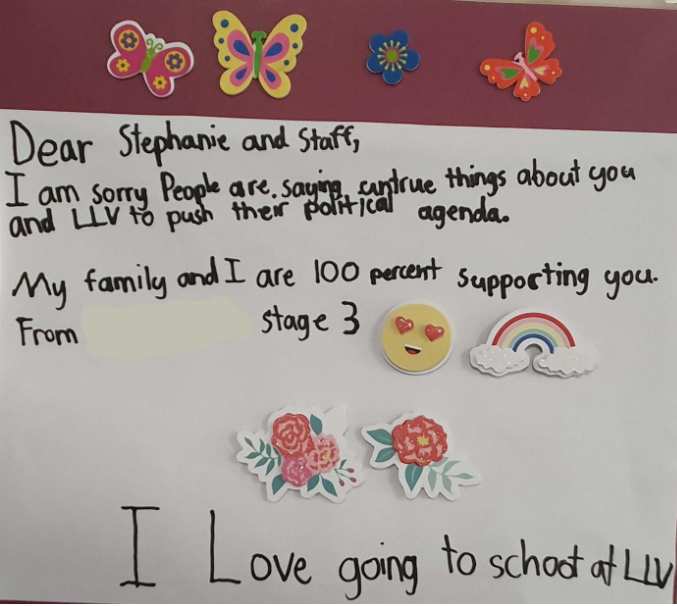 Dear Stephanie and Staff,
I am sorry People are. saying untrue things about you
and LLV to push their political agenda.
My family and I are 100 percent supporting you.
From stage 3
I Love going to school at LLV